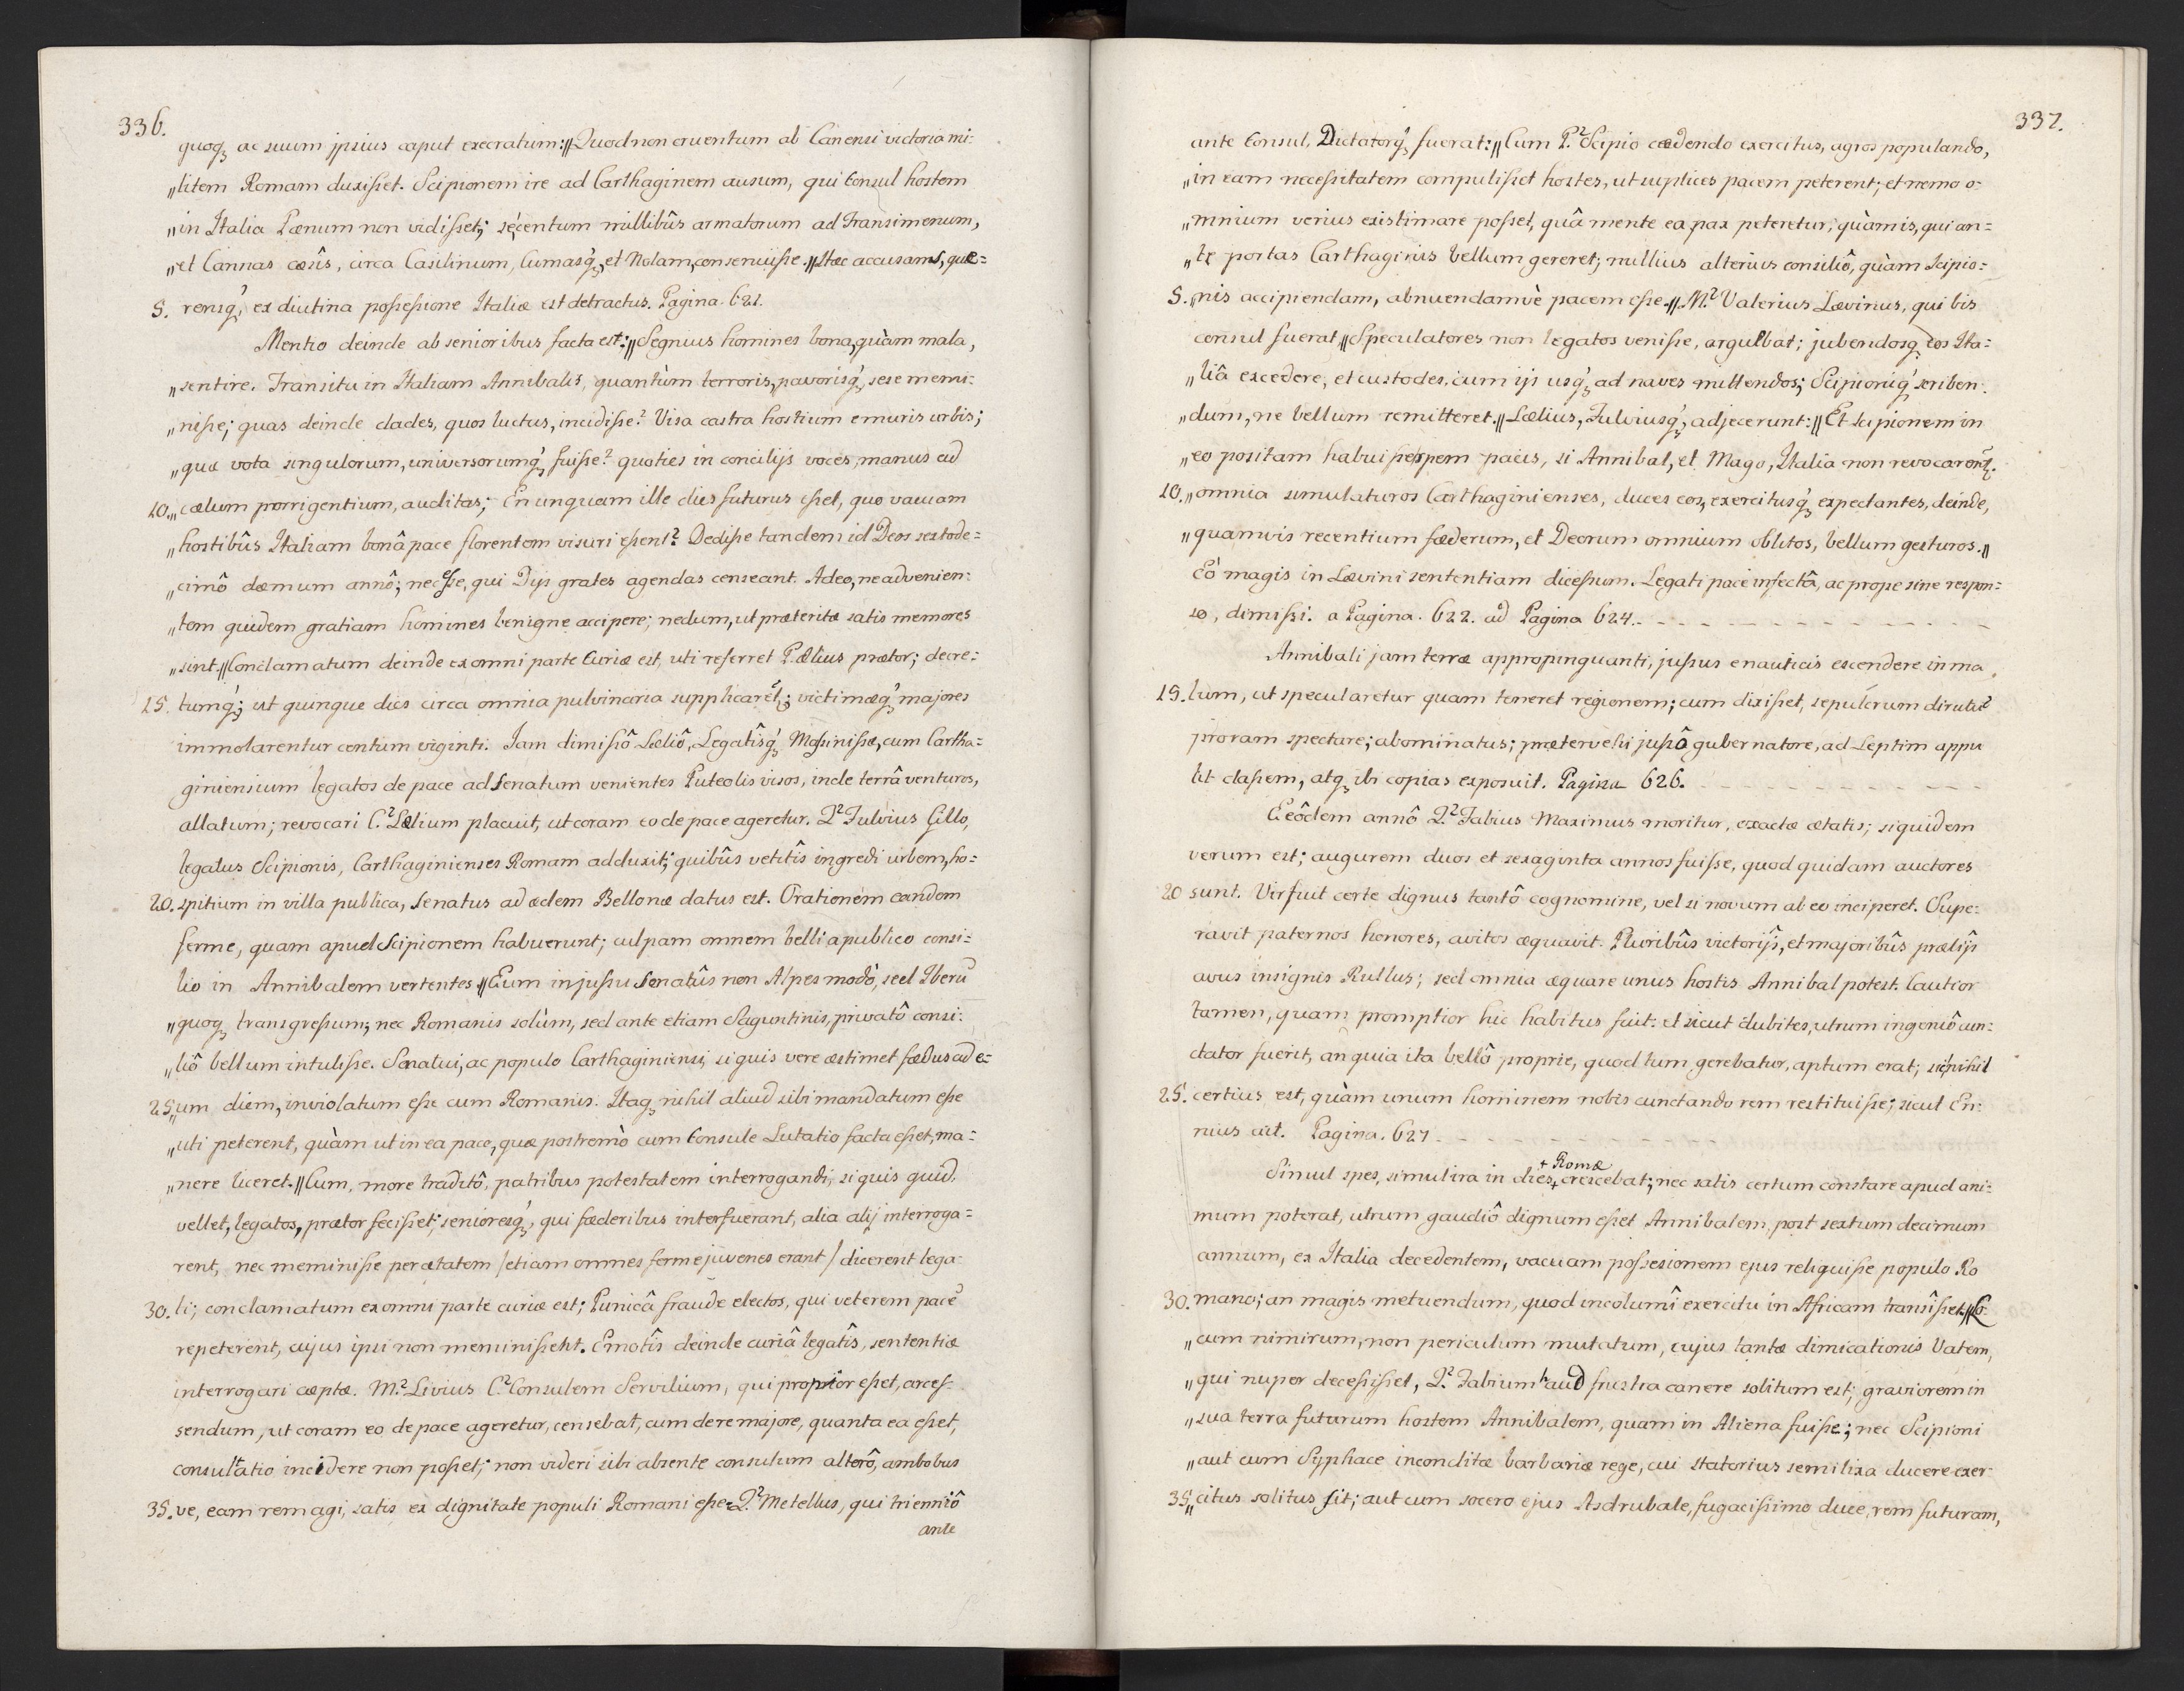 336.
quoq₃ ac suum jpsius caput execratum:〃Quod non cruentum ab Canensi victoria mi:
„litem Romam duxisset. Scipionem ire ad Carthaginem ausum, qui Consul hostem
„in Italia Pænum non vidisset; sé centum millibûs armatorum ad Transimenum,
„et Cannas cæsîs, circa Casilinum, Cumasq́₃, et Nolam, consenuisse.〃Hæc accusans, quæ=
5. rensq́₃ ex diutina possessione Italiæ est detractus. Pagina. 621.
Mentio deinde ab senioribus facta est:〃Segnius homines bona, quàm mala,
„sentire. Transitu in Italiam Annibalis, quantùm terroris, pavorisq́₃, sese memi:
„nisse; quas deinde clades, quos luctus, incidisse? Visa castra hostium e muris urbis;
„quæ vota singulorum, universorumq́₃ fuisse? quoties in concilijs voces, manus ad
10.„cælum porrigentium, auditas; En unquam ille dies futurus esset, quo vacuam
„hostibûs Italiam bonâ pace florentem visuri essent? Dedisse tandem id Deos sextode=
„cimô dæmum annô; nec esse, qui Dijs grates agendas censeant. Adeo, ne advenien:
„tem quidem gratiam homines benigne accipere; nedum, ut præteritæ satis memores
„sint.〃Conclamatum deinde ex omni parte Curiæ est, uti referret P. Ælius prætor; decre:
15. tumq́₃; ut quinque dies circa omnia pulvinaria supplicarēt₃; victimæq́₃ majores
immolarentur centum viginti. Jam dimissô Læliô, Legatîsq́₃ Massinissæ, cum Cartha=
giniensium legatos de pace ad Senatum venientes Puteolis visos, inde terrâ venturos,
allatum; revocari C.² Lælium placuit, ut coram eo de pace ageretur. Q.² Fulvius Gillo,
legatus Scipionis, Carthaginienses Romam adduxit; quibûs vetitîs ingredi urbem, ho=
20. spitium in villa publica, Senatus ad ædem Bellonæ datus est. Orationem eandem
ferme, quam apud Scipionem habuerunt; culpam omnem belli a publico consi=
lio in Annibalem vertentes〃Eum injussu Senatûs non Alpes modò, sed Iberū
„quoq₃ transgressum; nec Romanis solùm, sed ante etiam Saguntinis, privatô consi:
„liô bellum intulisse. Senatui, ac populo Carthaginiensi, si quis vere æstimet fœdus ad e=
25.„um diem, inviolatum esse cum Romanis. Itaq₃ nihil aliud sibi mandatum esse
„uti peterent, quàm ut in ea pace, quæ postremò cum Consule Lutatio facta esset, ma=
„nere liceret.〃Cum, more traditô, patribus potestatem interrogandi, si quis quid.
vellet, legatos, prætor fecisset; senioresq́₃, qui fœderibus interfuerant, alia alij interroga=
rent, nec meminisse per ætatem /etiam omnes ferme juvenes erant/ dicerent lega:
30. ti; conclamatum ex omni parte curiæ est; Punicâ fraude electos, qui veterem pacē
repeterent, cujus ipsi non meminissent. Emotîs deinde curiâ legatîs, sententiæ
interrogari cæptæ. M.² Livius C.² Consulem Servilium, qui proprior esset, arces-
sendum, ut coram eo de pace ageretur, censebat, cum de re majore, quanta ea esset,
consultatio incidere non posset; non videri sibi absente consulum alterô, ambobus
35. ve, eam rem agi, satis ex dignitate populi Romani esse. Q.² Metellus, qui trienniô
ante
337.
ante Consul, Dictatorq́₃ fuerat:〃Cum P.² Scipio cædendo exercitus, agros populando,
„in eam necessitatem compulisset hostes, ut suplices pacem peterent; et nemo o=
„mnium verius existimare posset, quâ mente ea pax peteretur, quàm is, qui an=
„te portas Carthaginis bellum gereret; nullius alterius consiliô, quàm Scipio=
5.„nis accipiendam, abnuendamvè pacem esse.〃M.² Valerius Lævinus, qui bis
consul fuerat,〃Speculatores non legatos venisse, arguebat; jubendosq₃ eos Ita=
„liâ excedere, et custodes cum ijs usq́₃ ad naves mittendos; Scipioniq́₃ scriben:
„dum, ne bellum remitteret.〃Lælius, Fulviusq́₃, adjecerunt:〃Et Scipionem in
„eo positam habuisse spem pacis, si Annibal, et Mago, Italia non revocarent₃.
10.„omnia simulaturos Carthaginienses, duces eos, exercitusq́₃ expectantes, deinde,
„quamvis recentium fœderum, et Deorum omnium oblitos, bellum gesturos.〃
Eó magis in Lævini sententiam dicessum. Legati pace infectâ, ac prope sine respon=
so, dimissi. a Pagina. 622. ad Pagina 624.
Annibali jam terræ appropinquanti, jussus e nauticis escendere in ma
15. lum, ut specularetur quam teneret regionem; cum dixisset, sepulcrum dirutū
proram spectare; abominatus; prætervehi jussô gubernatore, ad Leptim appu
lit classem, atq₃ ibi copias exposuit. Pagina 626.
Eeôdem annô Q.² Fabius Maximus moritur, exactæ ætatis; siquidem
verum est; augurem duos et sexaginta annos fuisse, quod quidam auctores
20 sunt. Vir fuit certe dignus tantô cognomine, vel si novum ab eo inciperet. Supe:
ravit paternos honores, avitos æquavit. Pluribûs victorijs, et majoribûs prælijs
avus insignis Rullus; sed omnia æquare unus hostis Annibal potest. Cautior
tamen, quam promptior hic habitus fuit: et sicut dubites, utrum ingeniô cun:
ctator fuerit, an quia ita bellô proprie, quod tum gerebatur, aptum erat; sic nihil
25. certius est, quàm unum hominem nobis cunctando rem restituisse; sicut En:
nius ait. Pagina. 627.
+ Romæ
Simul spes, simul ira in dies + crescebat; nec satis certum constare apud ani=
mum poterat, utrum gaudiô dignum esset Annibalem, post sextum decimum
annum, ex Italia decedentem, vacuam possesionem ejus reliquisse populo Ro
30. mano; an magis metuendum, quod incolumî exercitu in Africam transîsset.〃Lo:
„cum nimirum, non periculum mutatum, cujus tantæ dimicationis Vatem,
„qui nuper decessisset, Q.² Fabium haud frustra canere solitum est; graviorem in
„sua terra futurum hostem Annibalem, quam in Aliena fuisse; nec Scipioni
„aut cum Syphace inconditæ barbariæ rege, cui Statorius semilixa ducere exer
35.„citus solitus sit; aut cum socero ejus Asdrubale, fugacissimo duce, rem futuram,